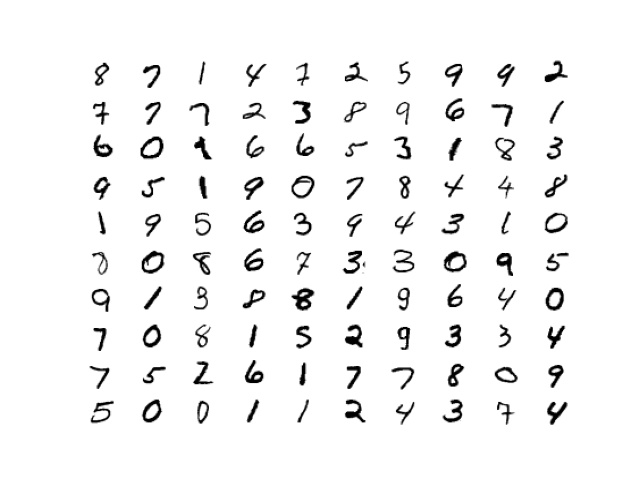 8 7 1 4 7 2 5 9 9 2
7 7 7 2 3 8 9 6 7 1
6 0 1 6 6 5 3 1 8 3
9 5 1 9 0 7 8 4 4 8
1 9 5 6 3 9 4 3 1 0
0 8 6 7 3 3 0 9 5
9 1 3 8 8 1 9 6 4 0
7 0 8 1 5 2 9 3 3 4
7 5 2 6 1 7 7 8 0 9
5 0 0 1 1 2 4 3 7 4